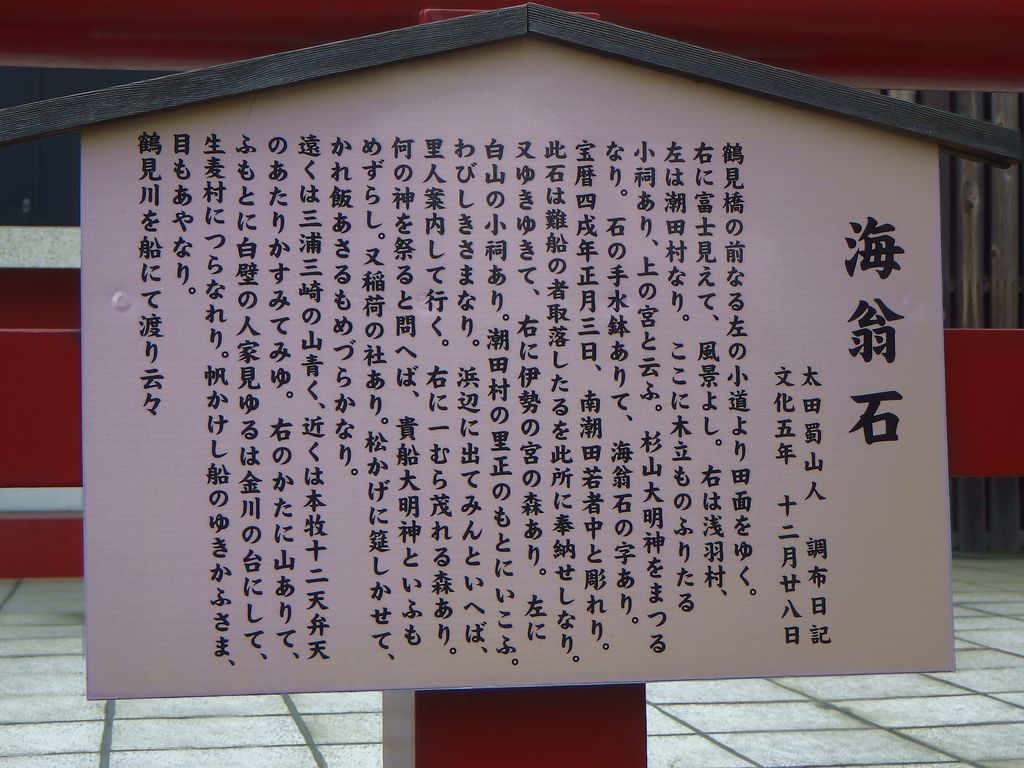 海翁石
太田蜀山人 調布日記
文化五年 十二月廿八日
鶴見橋の前なる左の小道より田面をゆく。
右に富士見えて、風景よし。右は浅羽村、
左は潮田村なり。ここに木立ものふりたる
小祠あり、上の宮と云ふ。杉山大明神をまつる
なり。石の手水鉢ありて、海翁石の字あり。
宝暦四戌年正月三日、南潮田若者中と彫れり。
此石は難船の者取落したるを此所に奉納せしなり。
又ゆきゆきて、右に伊勢の宮の森あり。左に
白山の小祠あり。潮田村の里正のもとにいこふ。
わびしきさまなり。浜辺に出てみんといへば、
里人案内して行く。右に一むら茂れる森あり。
何の神を祭ると問へば、貴船大明神といふも
めずらし。又稲荷の社あり。松かげに筵しかせて、
かれ飯あさるもめづらかなり。
遠くは三浦三崎の山青く、近くは本牧十二天弁天
のあたりかすみてみゆ。右のかたに山ありて、
ふもとに白壁の人家見ゆるは金川の台にして、
生麦村につらなれり。帆かけし船のゆきかふさま、
目もあやなり。
鶴見川を船にて渡り云々